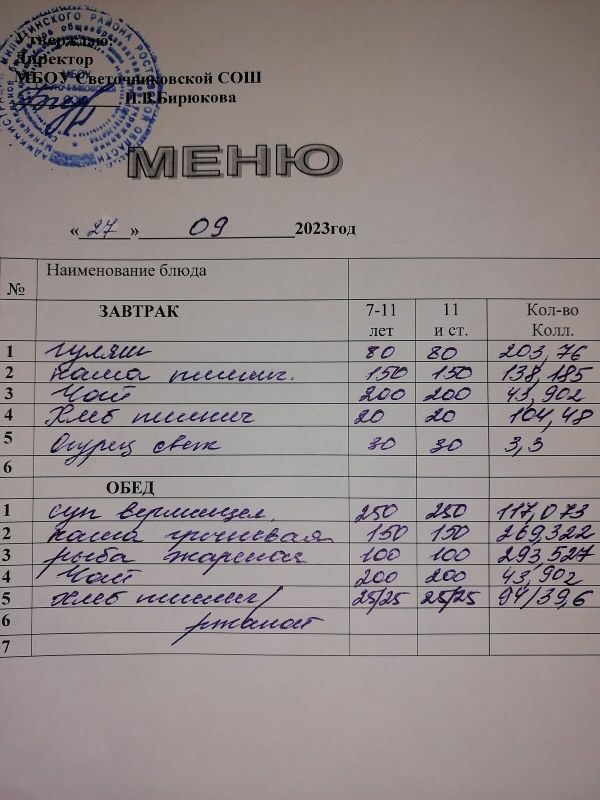 Утверждаю:
Директор
МБОУ Светочниковской СОШ
И.В.Бирюкова
МЕНЮ
«27» 09 2023год
№ Наименование блюда
ЗАВТРАК 7-11 лет 11 и ст. Кол-во Колл.
1 гуляш 80 80 203,76
2 каша пшенич. 150 150 138,185
3 Чай 200 200 43,902
4 Хлеб пшенич 20 20 104,48
5 Огурец свеж 30 30 3,3
6
ОБЕД
1 суп вермишел. 250 250 117,073
2 каша гречневая 150 150 269,322
3 рыба жареная 100 100 293,527
4 Чай 200 200 43,902
5 хлеб пшенич/ 25/25 25/25 94/39,6
6 ржаной
7